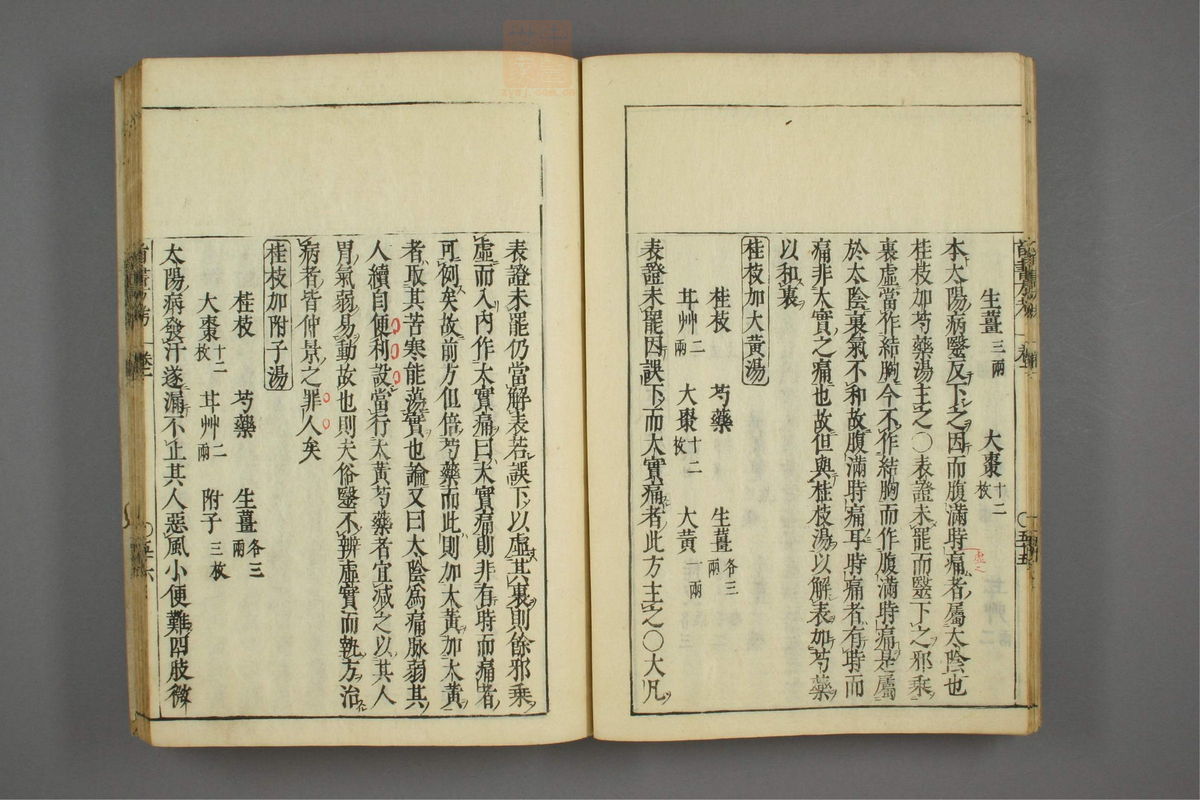 生薑三兩　大棗十二枚
本太陽病毉反下之因而腹滿時痛者屬太陰也
桂枝加芍藥湯主之〇表證未罷而毉下之邪乘
裏虛當作結胸今不作結胸而作腹滿時痛是屬
於太陰裏氣不和故腹滿時痛耳時痛者有時而
痛非大實之痛也故但與桂枝湯以解表加芍藥
以和裏
桂枝加大黃湯
桂枝　芍藥　生薑各三兩
甘艸二兩　大棗十二枚　大黃一兩
表證未罷因誤下而大實痛者此方主之〇大凡
表證未罷仍當解表若誤下以虛其裏則餘邪乘
虛而入內作大實痛曰大實痛則非有時而痛者
可例矣故前方但倍芍藥而此則加大黃加大黃
者取其苦寒能蕩實也論又曰太陰為痛脉弱其
人續自便利設當行大黃芍藥者宜減之以其人
胃氣弱易動故也則夫俗毉不辨虛實而執方治
病者皆仲景之罪人矣
桂枝加附子湯
桂枝　芍藥　生薑各三兩
大棗十二枚　甘艸二兩　附子三枚
太陽病發汗遂漏不止其人惡風小便難四肢微
卷二
五十六